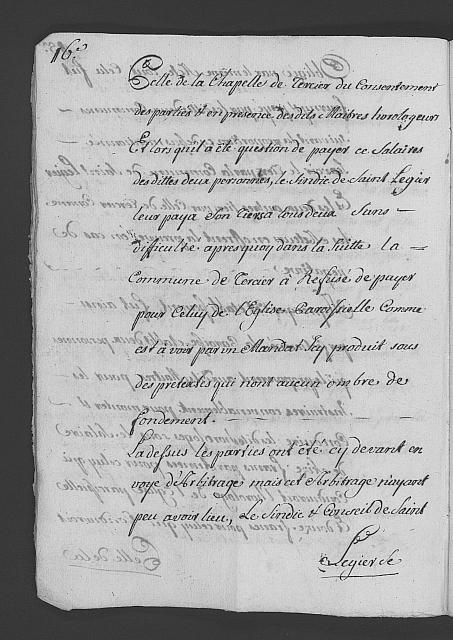 16.e
Celle de la Chapelle de Tercier du Consentement
des parties & en presence des dits Maitres horologeurs
Et lors qu'il a été question de payer ce Salaires
des dittes deux personnes, le Sindic de Saint Legier
leur paya Son tiers a tous deux Sans —
difficulté apres quoy dans la Suitte la —
Commune de Tercier à Refusé de payer
pour Celuy de l'Eglise Paroissielle Comme
est à voir par un Mandat Icy produit sous
des pretextes qui n'ont aucun ombre de
fondement. —
La dessus les parties ont été cy devant en
voye d'Arbitrage mais cet Arbitrage n'ayant
peu avoir lieu, Le Sindic & Conseil de Saint
Legier se